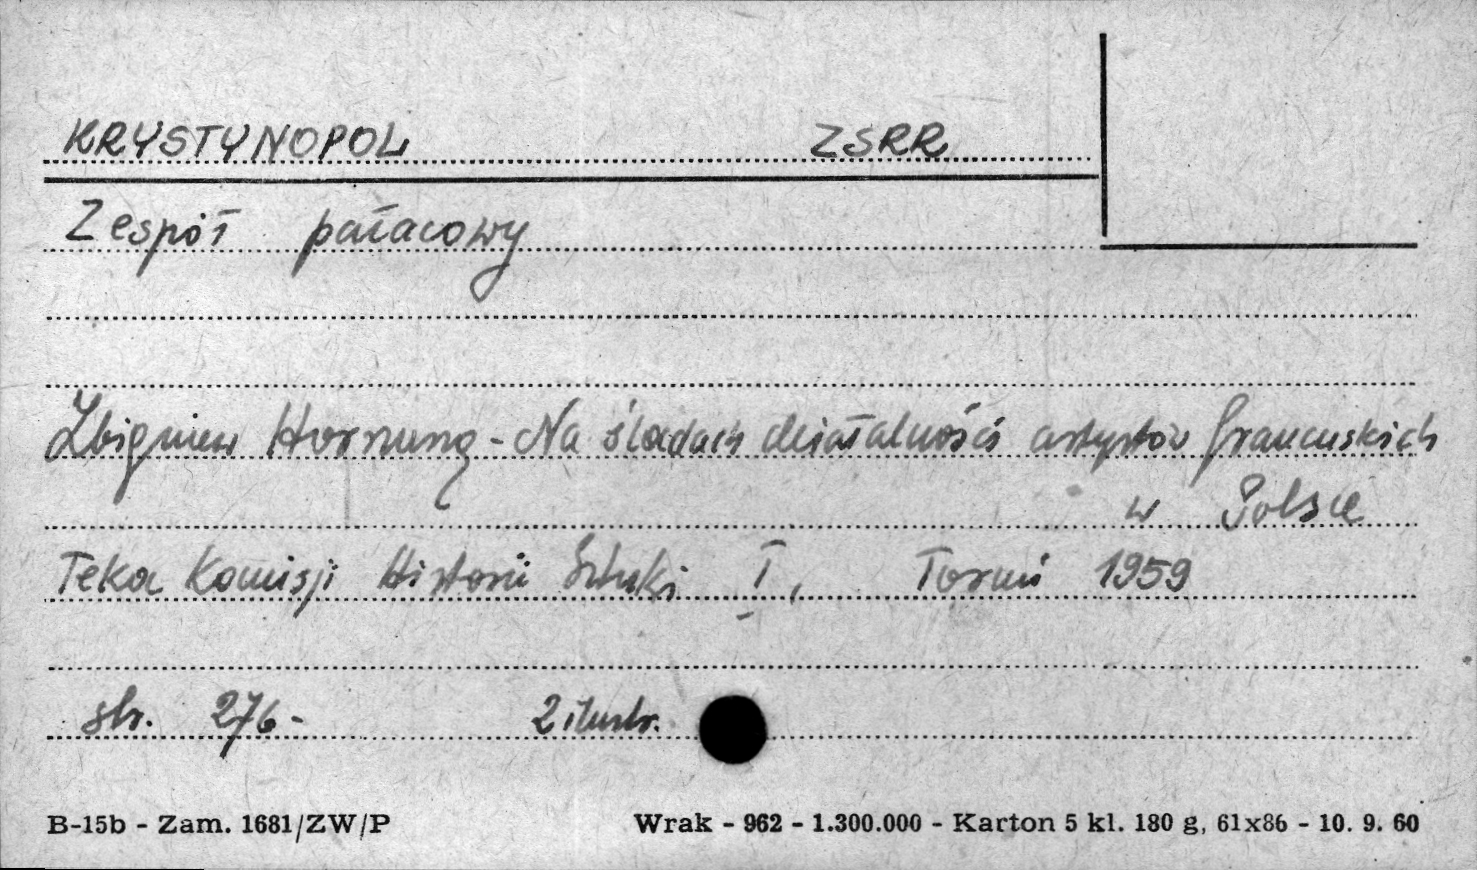 KRYSTYNOPOL ZSRR
Zespół pałacowy
Zbigniew Hornung - Na śladach działalności artystów francuskich
w Polsce
Teka Komisji Historii Sztuki I, Toruń 1959
str. 276- 2 ilustr.
B-15b - Zam. 1681/ZW/P Wrak - 962 - 1.300.000 - Karton 5 kl. 180 g, 61x86 - 10. 9. 60